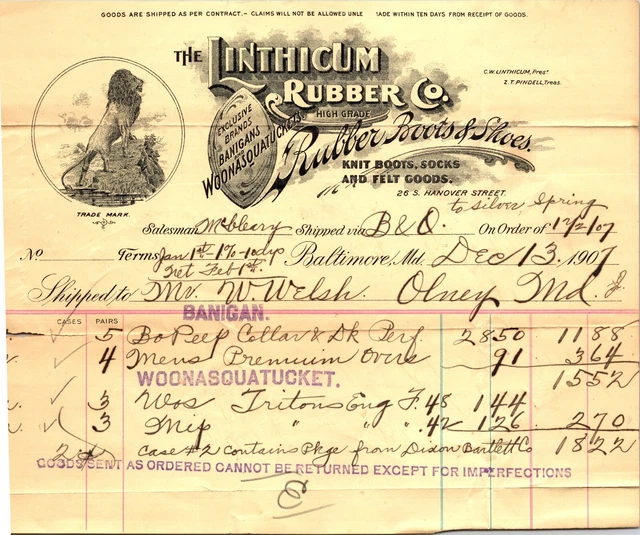 GOODS ARE SHIPPED AS PER CONTRACT. – CLAIMS WILL NOT BE ALLOWED UNLE ADE WITHIN TEN DAYS FROM RECEIPT OF GOODS.
THE LINTHICUM
RUBBER CO.
C.W. LINTHICUM, Prest.
Z.T. PINDELL, Treas.
EXCLUSIVE
BRANDS
BANIGANS
WOONASQUATUCKETS
HIGH GRADE
Rubber Boots & Shoes.
KNIT BOOTS, SOCKS
AND FELT GOODS.
26 S. HANOVER STREET.
TRADE MARK.
to Silver Spring
Salesman McCleary Shipped via B & O. On Order of 12/2/07
No Terms Jan 1st - 1% - 10 dys Baltimore, Md. Dec 13, 1907
Net Feb 1st.
Shipped to Mr. W Welsh. Olney Md.
BANIGAN.
CASES PAIRS
5 Bo Peep Collar & Dk Perf 2850 1188
4 Mens Premium Overs 91 364
1552
WOONASQUATUCKET.
3 Wos Tritons Eng F. 48 144
3 Miss " " " 42 126 270
Case #2 contains Pkge from Dixon Bartlett Co 1822
GOODS SENT AS ORDERED CANNOT BE RETURNED EXCEPT FOR IMPERFECTIONS